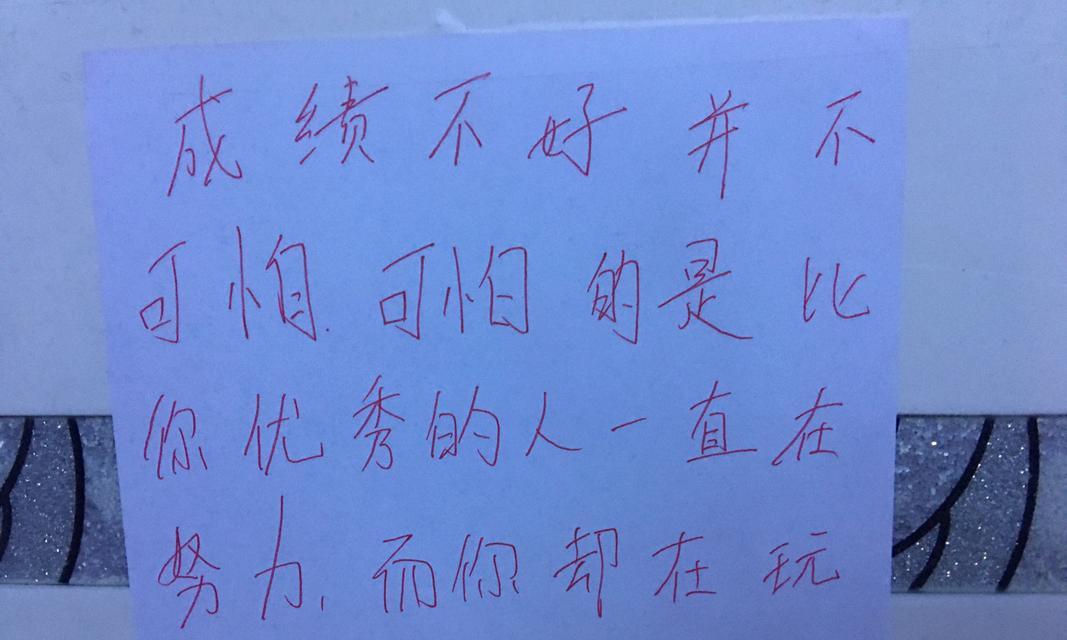 成绩不好并不
可怕.可怕的是比
你优秀的人一直在
努力,而你却在玩